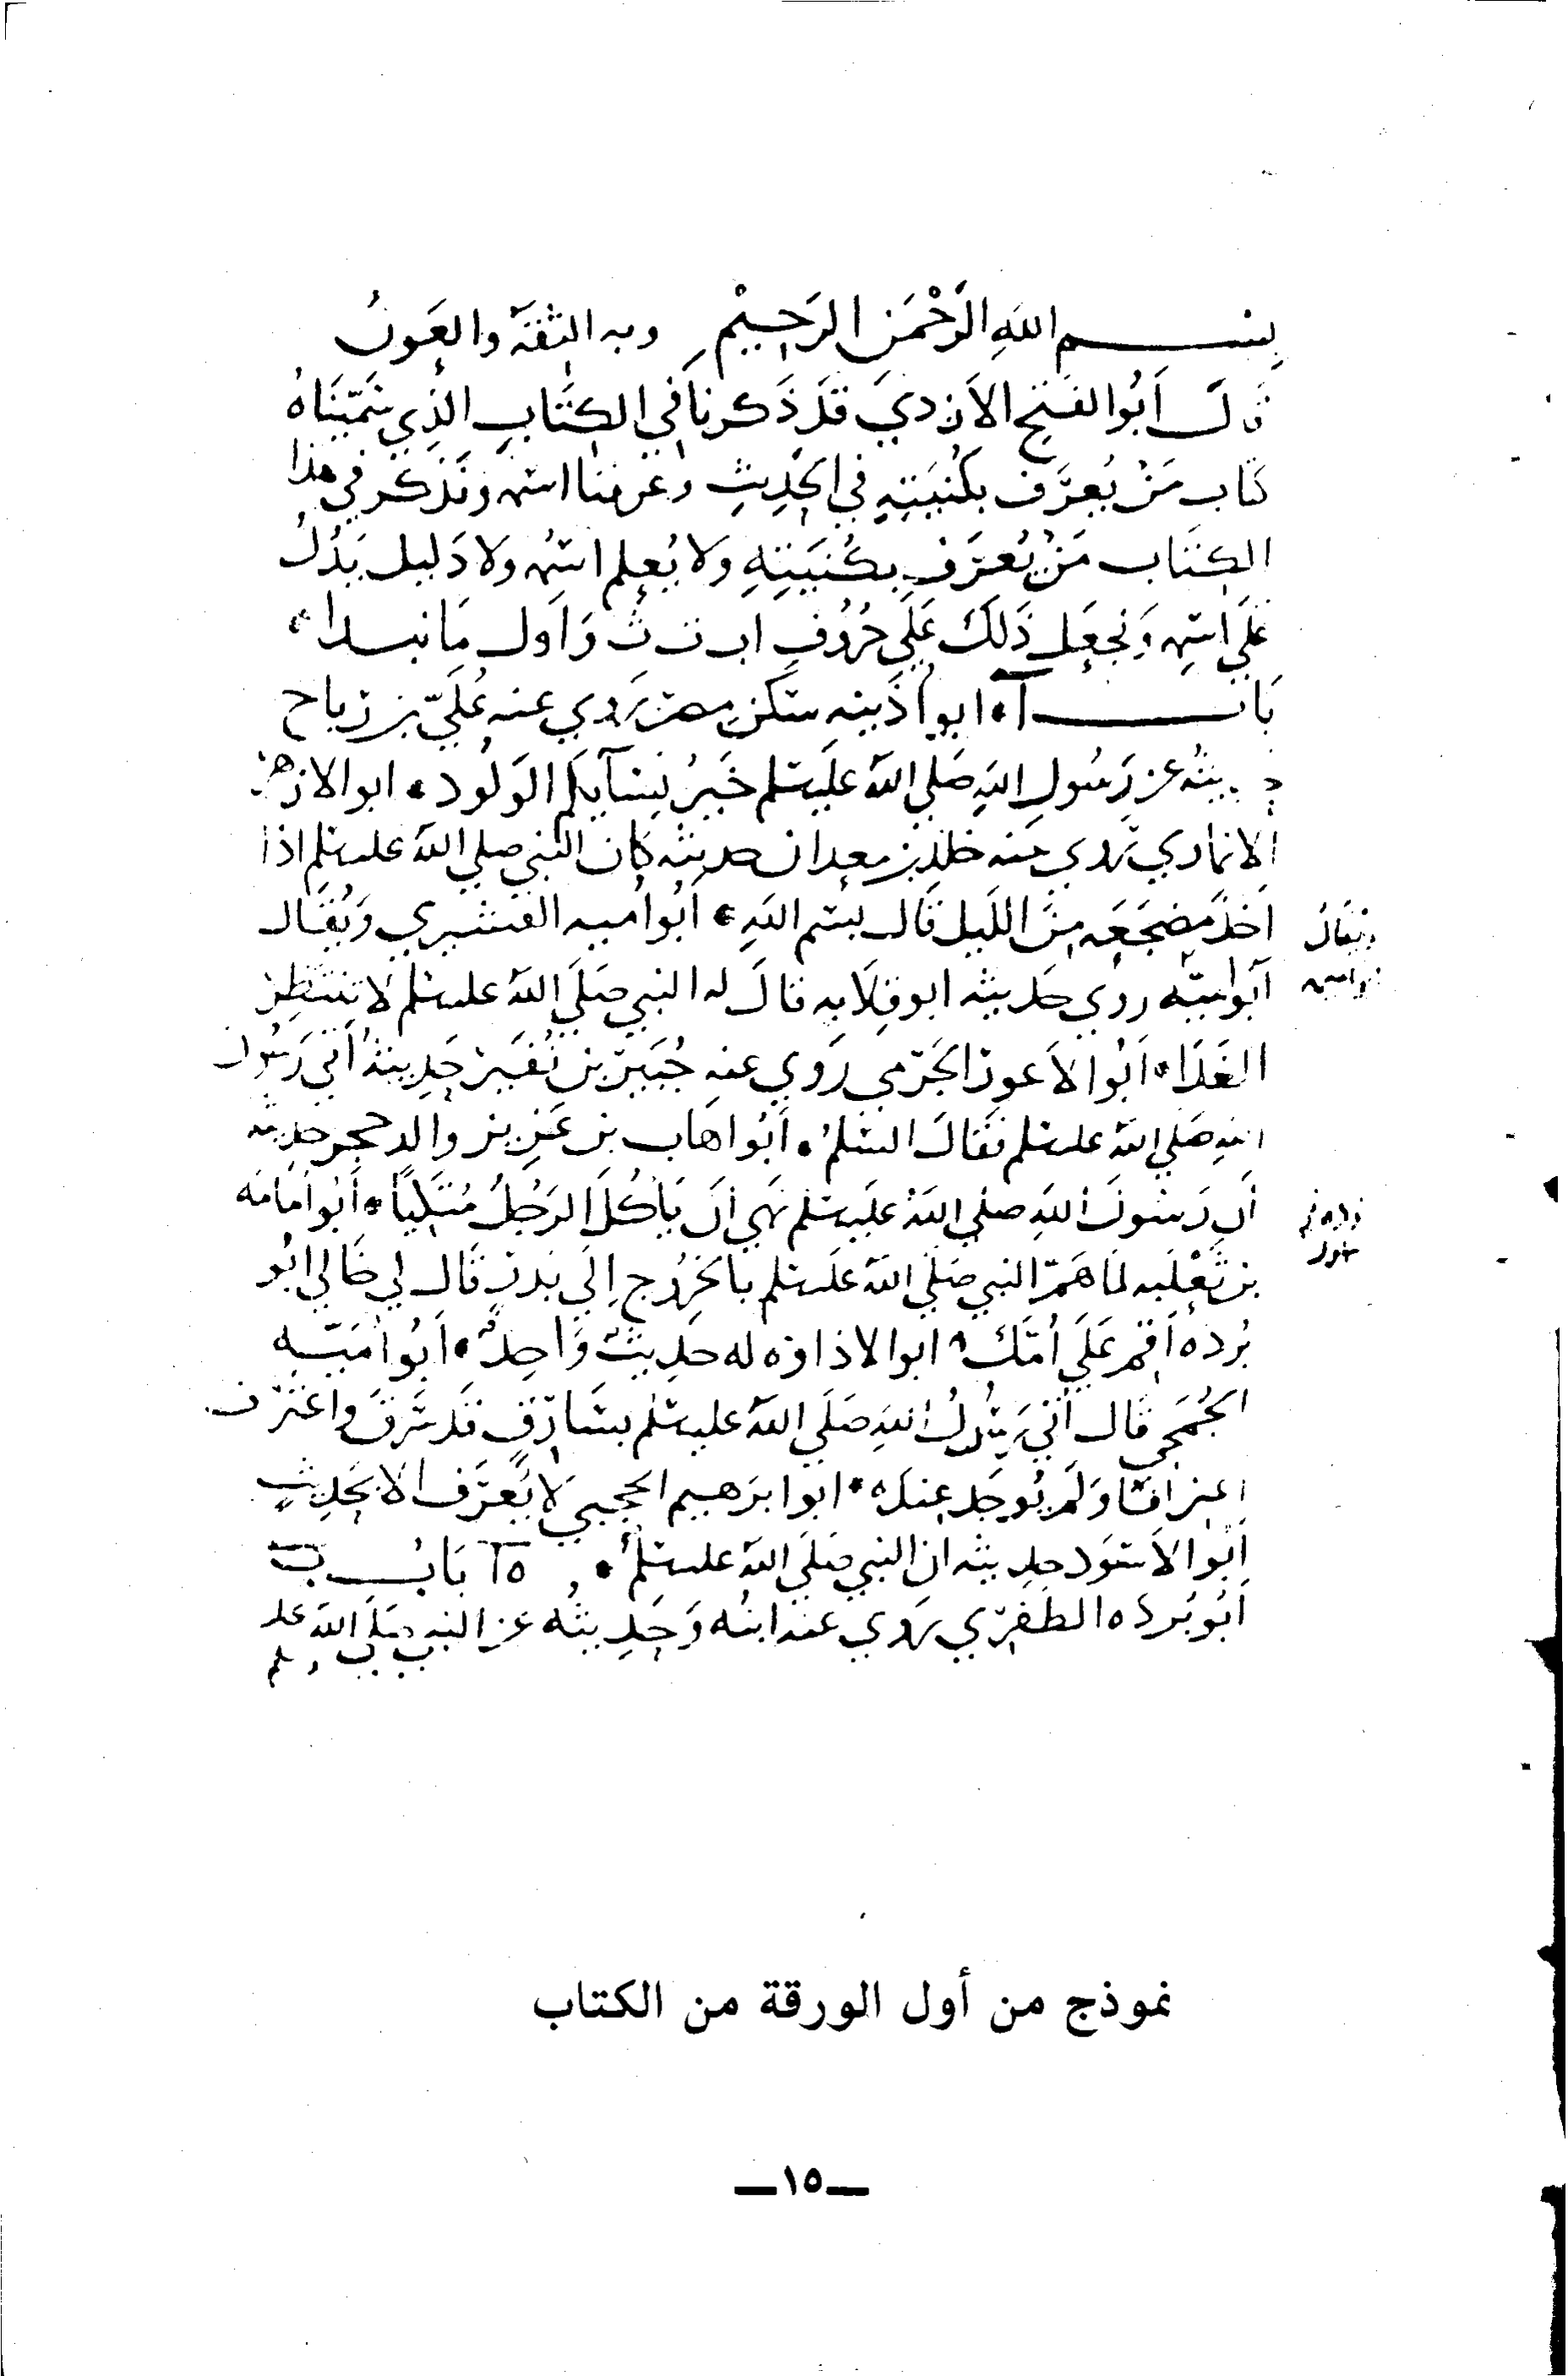 بسم اللهِ الرَّحْمَن الرَحِيمِ وبه الثقة والعَونُ
قالَ أبُو الفَتح الأزديَ قَد ذَكرنا في الكِتَابِ الذِي سَمَّينَاهُ
كتاب مَن يُعرَف بكُنيَتِهِ في الحَدِيثِ وعرفنا اسمه ونَذكر في هذا
الكِتَاب مَنْ يُعرَف بِكُنيَتِهِ ولا يُعلم اسمُه ولا دَليل يَدُلُ
عَلَى اسمِه وَنجعَل ذَلكَ عَلَى حُرُوفِ ا ب ت ث وَأول مَا نبدا
بَاب آ ابو أُذَينه سَكَن مصر رَوي عنه عُلَيّ بن رباح
حديثُه عن رَسُولِ اللهِ صَلي اللهُ عليه وسلم خَيرُ نِسَآيكم الوَلُود ابو الازهر
الانماري رَوي عنه خلد بن معدان حديثه كان النبي صلي الله عليه وسلم اذا
اخَذ مَضجَعَه مِنَ اللَيل قَال بسم اللهِ أبُو أميه القشيري وَيُقَال
أبو اميَّه روي حَديثه ابو قِلَابه قالَ له النبي صَلَي اللهُ عليه وسلم لا تنتظِر
الغَدَا أبُو الأعور الجَرمي رَوي عنه جُبَير بن نُفَير حَدِيثهُ أتَي رَسُول
اللهِ صَلي اللهُ عليه وسلم فقَالَ السَلم أبُو اهَاب بن عَزِيز والد حجير حديثه
أن رَسُولَ اللهِ صلي اللهُ عليه وسلم نهَي أن يَأكُلَ الرَجُلُ مُتَكِياً أبُو أمَامَه
بن ثَعْلَبه لمَا هَمّ النبي صَلَي اللهُ عليه وسلم بالخرُوج إلَي بَدرٍ قَال لي خَالي ابُو
بُرده أقم عَلَي أمّكَ ابو الاذاوره له حَديثٌ وَاحِدٌ أبُو أمَيّه
الجُمَحي قَال أتي رَسُولُ اللهِ صَلَي اللهُ عليه وسلم بسَارِقٍ قَد سَرقَ واعتَرف
اعترافا وَلم يُوجَد عِندَه ابو ابرهيم الحجبي لَا يُعرَف الا بحَدِيثٍ
أبُو الأسوَد حَديثه ان النبي صَلَي اللهُ عليه وسلم بَابُ ب
أبُو بُرده الظَفري رَوي عنه ابنُه وَحَدِيثُه عن النبي صَلَي اللهُ عليه
وسلم
ويقَالُ
نموذج من أول الورقة من الكتاب
—١٥—